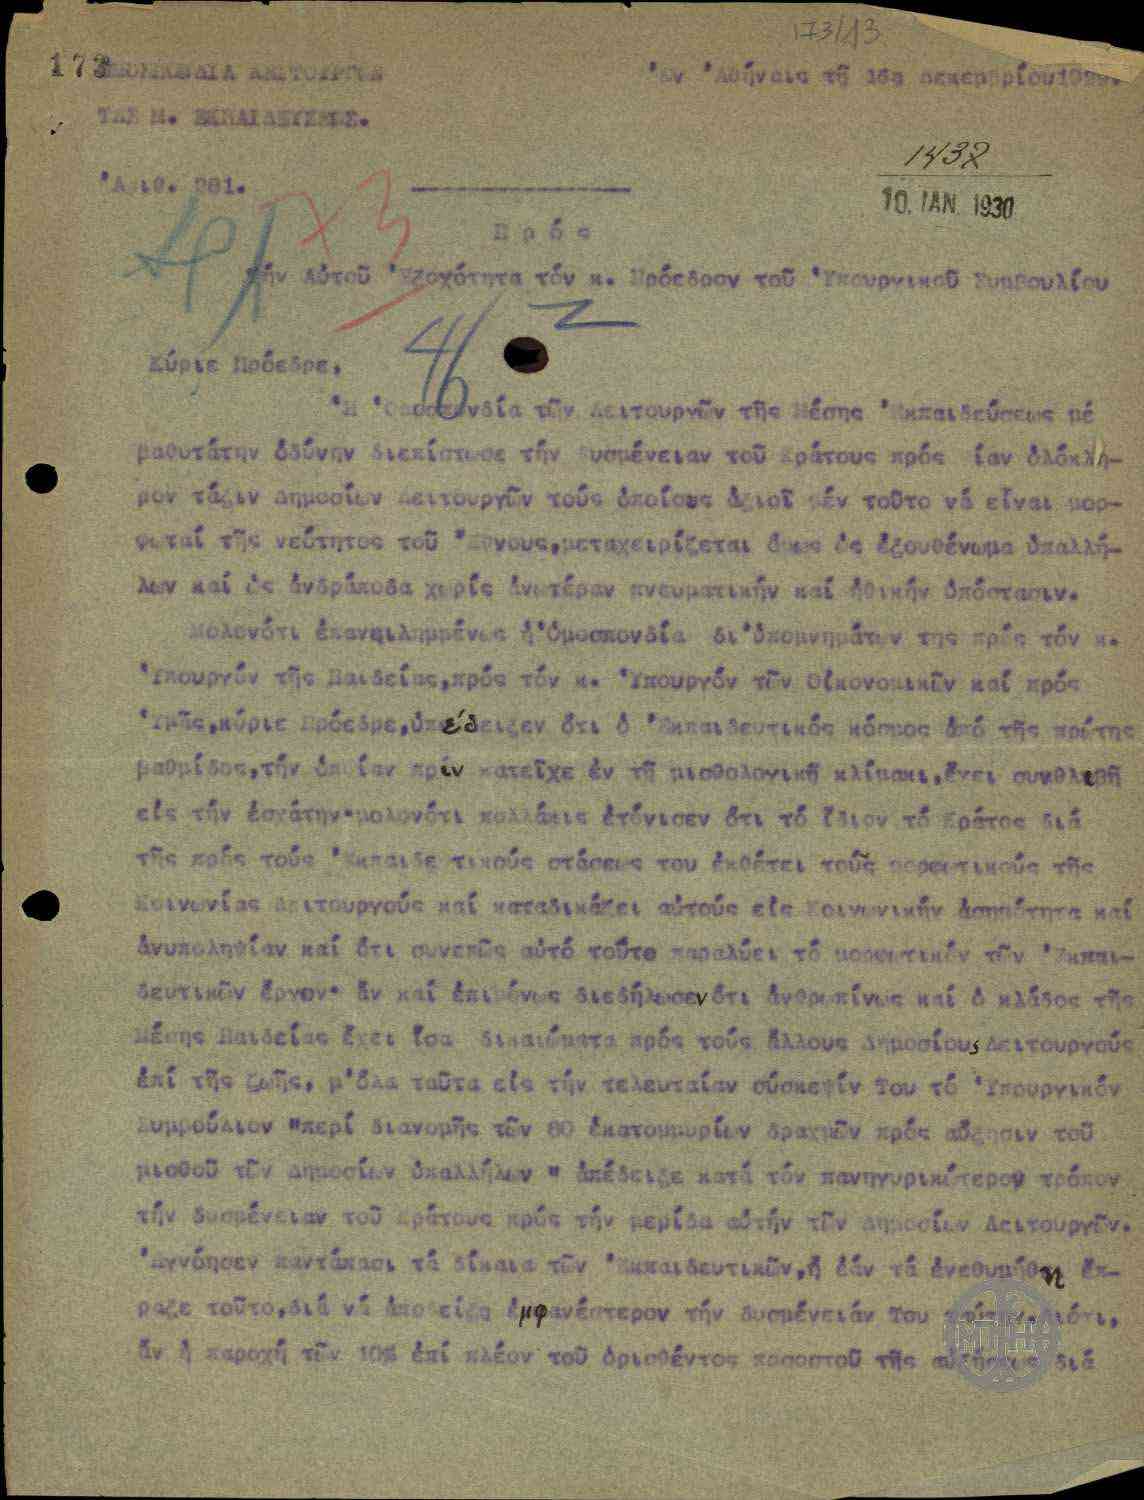 173/13
173 ΟΜΟΣΠΟΝΔΙΑ ΛΕΙΤΟΥΡΓΩΝ
Ἐν Ἀθήναις τῇ 16ῃ Δεκεμβρίου 1929.
ΤΗΣ Μ. ΕΚΠΑΙΔΕΥΣΕΩΣ.
1432
Ἀριθ. 281.
10. ΙΑΝ. 1930
173
Πρός
Τήν Αὐτοῦ Ἐξοχότητα τόν κ. Πρόεδρον τοῦ Ὑπουργικοῦ Συμβουλίου
46
Κύριε Πρόεδρε,
Ἡ Ὁμοσπονδία τῶν Λειτουργῶν τῆς Μέσης Ἐκπαιδεύσεως μέ
βαθυτάτην ὀδύνην διεπίστωσε τήν δυσμένειαν τοῦ Κράτους πρός μίαν ὁλόκλη-
ρον τάξιν Δημοσίων Λειτουργῶν τούς ὁποίους ἀξιοῖ μέν τοῦτο νά εἶναι μορ-
φωταί τῆς νεότητος τοῦ Ἔθνους, μεταχειρίζεται ὅμως ὡς ἐξουθένωμα ὑπαλλή-
λων καί ὡς ἀνδράποδα χωρίς ἀνωτέραν πνευματικήν καί ἠθικήν ὑπόστασιν.
Μολονότι ἐπανειλημμένως ἡ Ὁμοσπονδία δι' ὑπομνημάτων της πρός τόν κ.
Ὑπουργόν τῆς Παιδείας, πρός τόν κ. Ὑπουργόν τῶν Οἰκονομικῶν καί πρός
Ὑμᾶς, κύριε Πρόεδρε, ὑπέδειξεν ὅτι ὁ Ἐκπαιδευτικός κόσμος ἀπό τῆς πρώτης
βαθμίδος, τήν ὁποίαν πρίν κατεῖχε ἐν τῇ μισθολογικῇ κλίμακι, ἔχει συνθλιβῆ
εἰς τήν ἐσχάτην· μολονότι πολλάκις ἐτόνισεν ὅτι τό ἴδιον τό Κράτος διά
τῆς πρός τούς Ἐκπαιδε τικούς στάσεως του ἐκθέτει τούς μορφωτικούς τῆς
Κοινωνίας Λειτουργούς καί καταδικάζει αὐτούς εἰς Κοινωνικήν ἀσημότητα καί
ἀνυποληψίαν καί ὅτι συνεπῶς αὐτό τοῦτο παραλύει τό μορφωτικόν τῶν Ἐκπαι-
δευτικῶν ἔργον· ἄν καί ἐπιμόνως διεδήλωσεν ὅτι ἀνθρωπίνως καί ὁ κλάδος τῆς
Μέσης Παιδείας ἔχει ἴσα δικαιώματα πρός τούς ἄλλους Δημοσίους Λειτουργούς
ἐπί τῆς ζωῆς, μ' ὅλα ταῦτα εἰς τήν τελευταίαν σύσκεψίν Του τό Ὑπουργικόν
Συμβούλιον "περί διανομῆς τῶν 80 ἑκατομμυρίων δραχμῶν πρός αὔξησιν τοῦ
μισθοῦ τῶν Δημοσίων ὑπαλλήλων " ἀπέδειξε κατά τόν πανηγυρικώτερον τρόπον
τήν δυσμένειαν τοῦ Κράτους πρός τήν μερίδα αὐτήν τῶν Δημοσίων Λειτουργῶν.
Ἀγνόησεν παντάπασι τά δίκαια τῶν Ἐκπαιδευτικῶν, ἤ ἐάν τά ἐνεθυμήθη ἔπ-
ραξε τοῦτο, διά νά ἀποδείξῃ ἐμφανέστερον τήν δυσμένειάν Του ταύτην, διότι,
ἄν ἡ παροχή τῶν 10% ἐπί πλέον τοῦ ὁρισθέντος ποσοστοῦ τῆς αὐξήσεως διά